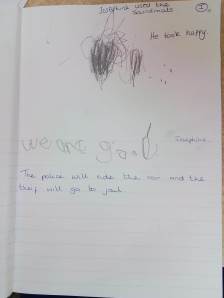 Josephine used the
soundmats
I
He took happy.
we are good
Josephine.
The police will ride the car and the
thief will go to jail.